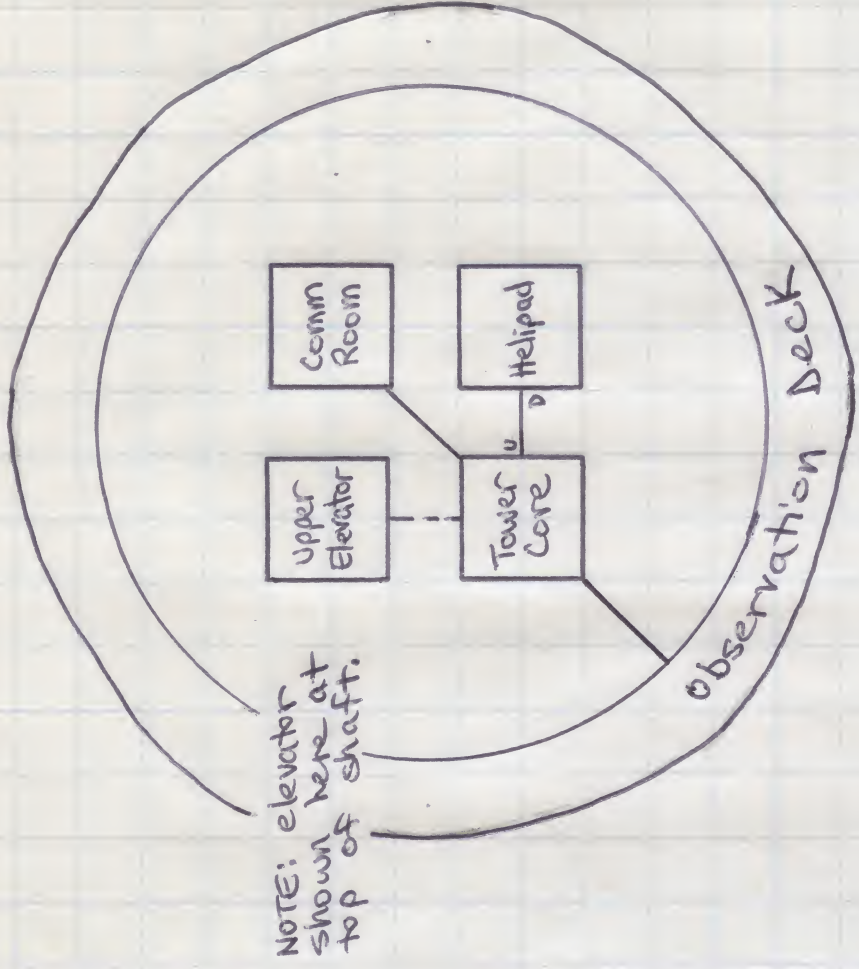 NOTE: elevator
shown here at
top of shaft.
Upper
Elevator
Comm
Room
Tower
Core
U
D
Helipad
Observation Deck